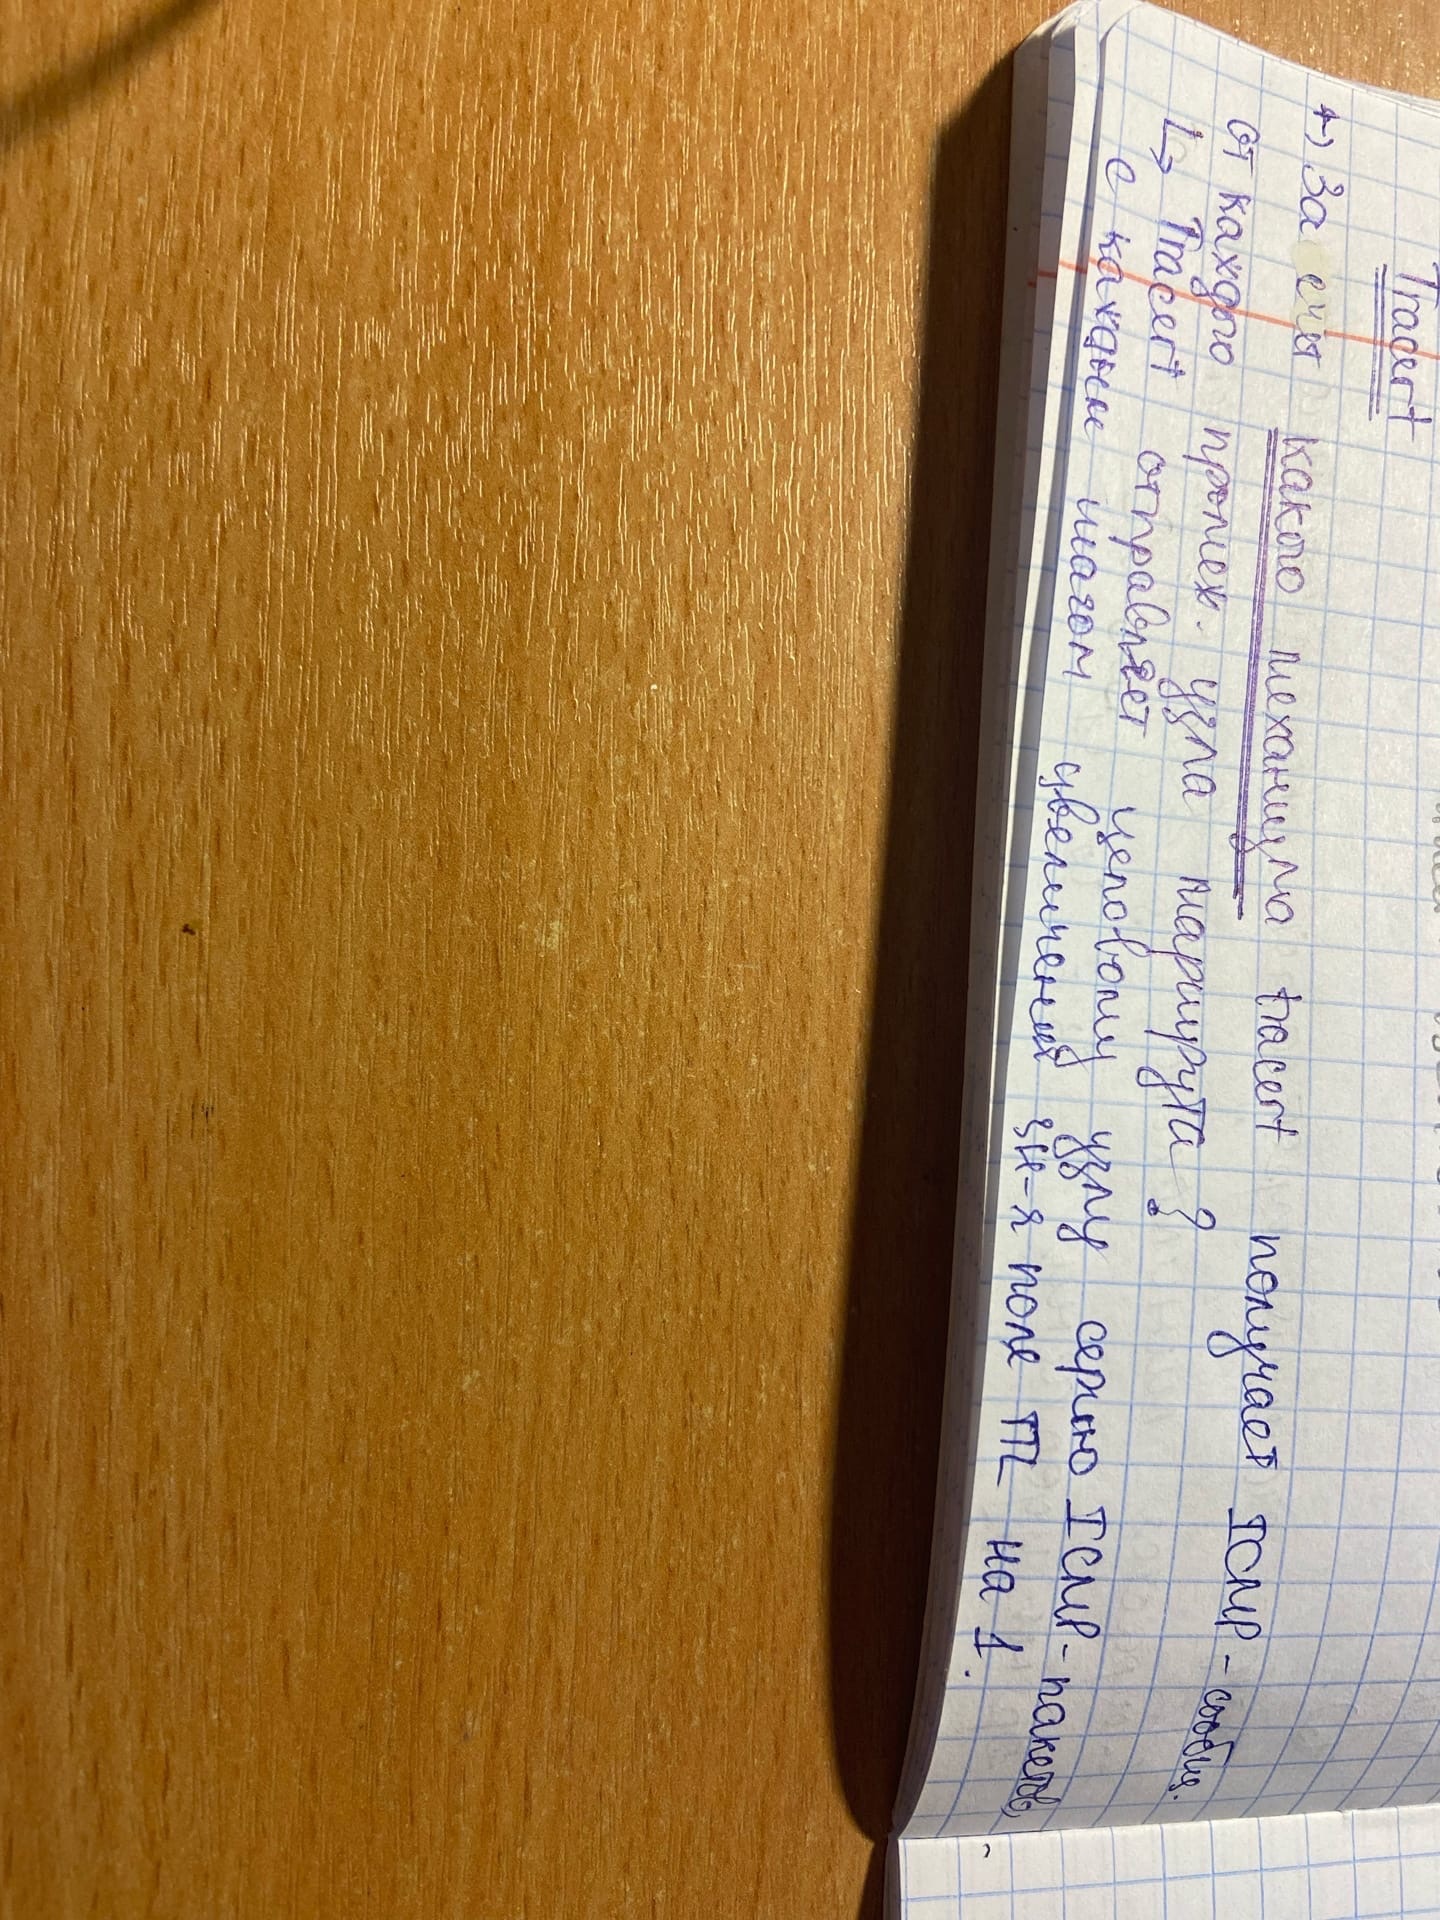 Tracert
+) За счёт какого механизма tracert получает ICMP-сообщ.
от каждого промеж. узла маршрута?
↳ Tracert отправляет целовому узлу серию ICMP-пакетов,
с каждым шагом увеличения зн-я поля TTL на 1.